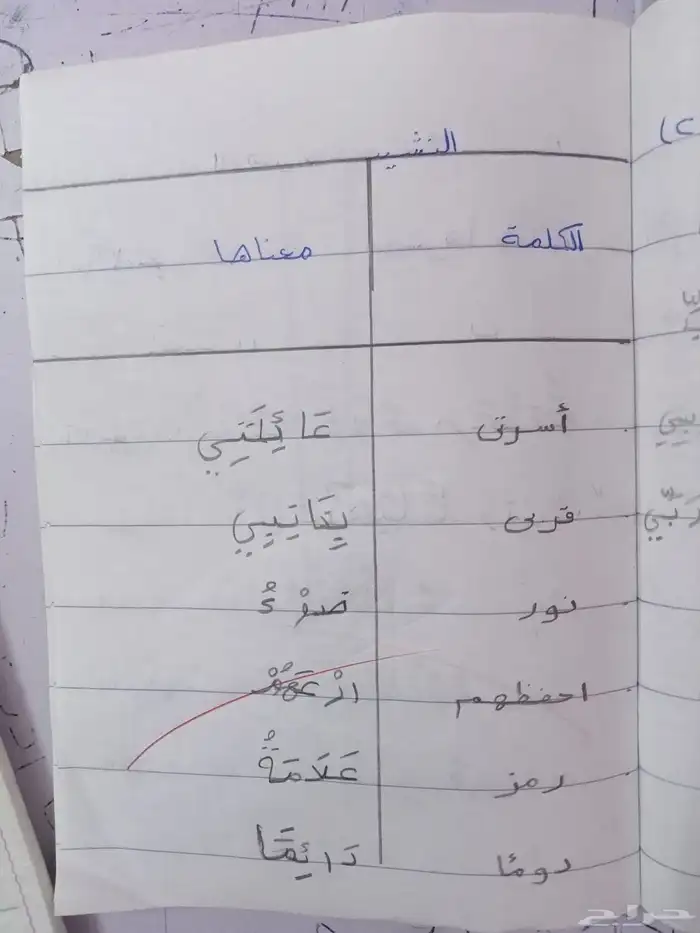 النشيد
الكلمة معناها
أسرتى عَائِلَتَِي
قربى بِجَانِبِي
نور ضوْءٌ
احفظهم ارْعَهُمْ
رمز عَلَامَةٌ
دومًا دَائِمًا
(٢
رَبِّي
حراج